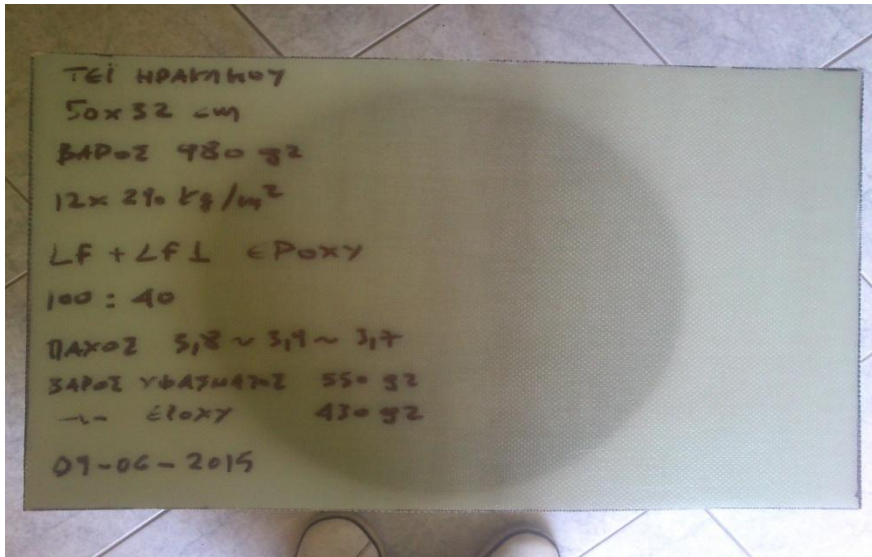 ΤΕΪ ΗΡΑΚΛΕΙΟΥ
50x32 cm
ΒΑΡΟΣ 980 gr
12x 290 kg/m²
LF + LF1 EPOXY
100 : 40
ΠΑΧΟΣ 3,8 ~ 3,9 ~ 3,7
ΒΑΡΟΣ ΥΦΑΣΜΑΤΟΣ 550 gr
-//- EPOXY 430 gr
09-06-2015